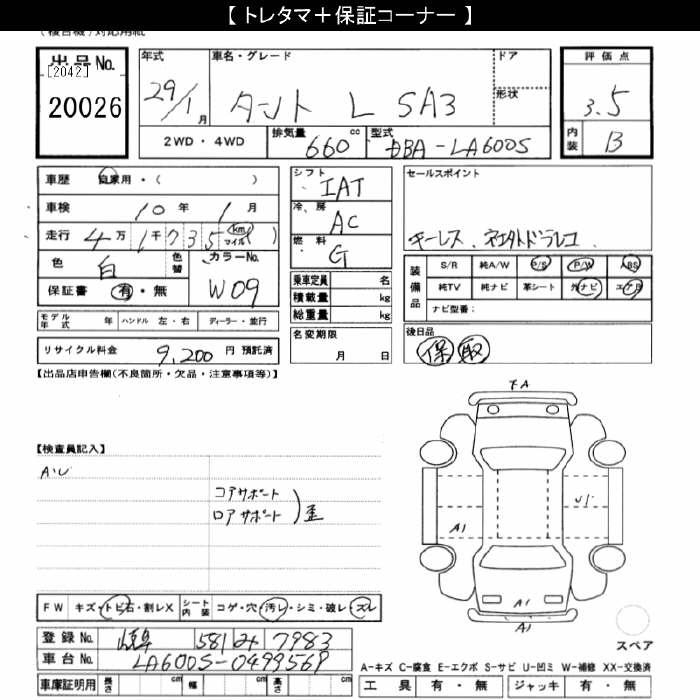 【 トレタマ＋保証コーナー 】
出品No.
[2042]
20026
年式
29/1月
車名・グレード
タント L SA3
ドア
形状
2WD ・ 4WD
排気量
660 cc
型式
DBA-LA600S
評価点
3.5
内装
B
車歴 自家用・( )
車検 10年 1月
走行 4万 1千 735 km マイル ( )
色 白 色替
カラーNo.
W09
保証書 有・無
モデル年式 年 ハンドル 左・右 ディーラー・並行
リサイクル料金 9,200 円 預託済
シフト
IAT
冷房
AC
燃料
G
乗車定員 名
積載量 kg
総重量 kg
名変期限
月 日
セールスポイント
キーレス.
装備品
S/R 純A/W P/S P/W ABS
純TV 純ナビ 革シート 外ナビ エアB
ナビ型番：
後日品
保 取
【出品店申告欄(不良箇所・欠品・注意事項等)】
【検査員記入】
A・U
コアサポート
ロアサポート ) 歪
FA
A1
U1
A1
A1
FW キズ・トビ石・割レX シート内装 コゲ・穴・汚レ・シミ・破レ・ズレ
登録No. 581 7983
車台No. LA600S-0499569
車庫証明用 長さ cm 幅 cm 高さ cm
スペア
A－キズ C－腐食 E－エクボ S－サビ U－凹ミ W－補修 XX－交換済
工具 有・無 ジャッキ 有・無